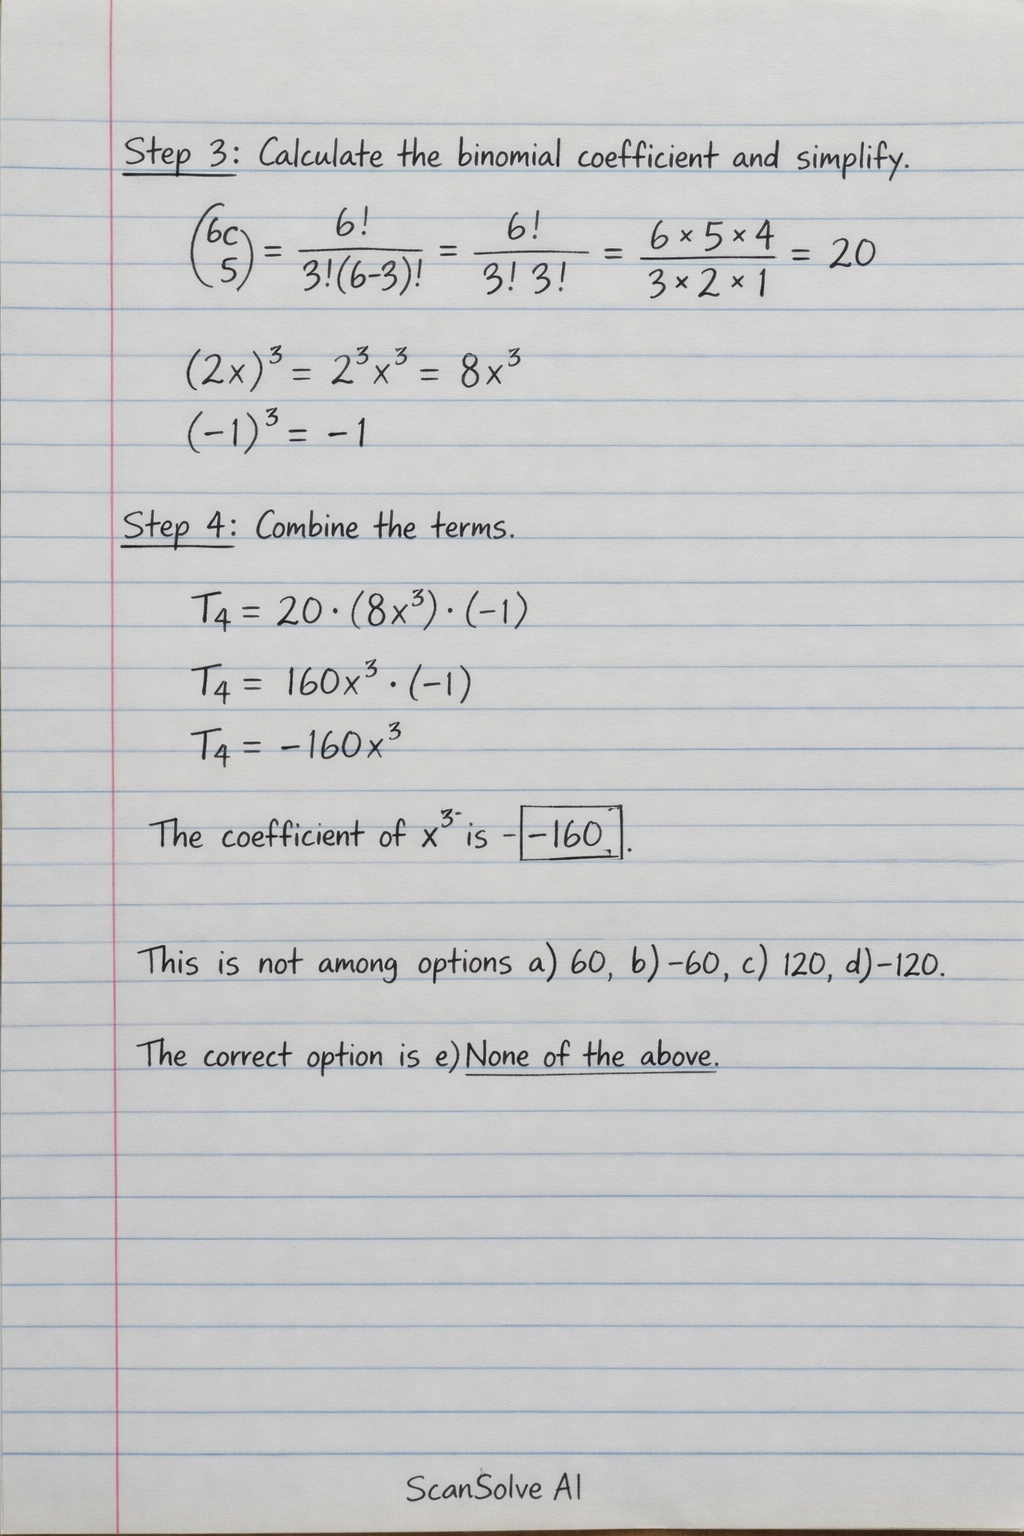 Step 3: Calculate the binomial coefficient and simplify.
(6c 5) = 6! / 3!(6-3)! = 6! / 3! 3! = 6 × 5 × 4 / 3 × 2 × 1 = 20
(2x)³ = 2³x³ = 8x³
(-1)³ = -1
Step 4: Combine the terms.
T₄ = 20 · (8x³) · (-1)
T₄ = 160x³ · (-1)
T₄ = -160x³
The coefficient of x³⁻ is - -160.
This is not among options a) 60, b) -60, c) 120, d) -120.
The correct option is e) None of the above.
ScanSolve AI